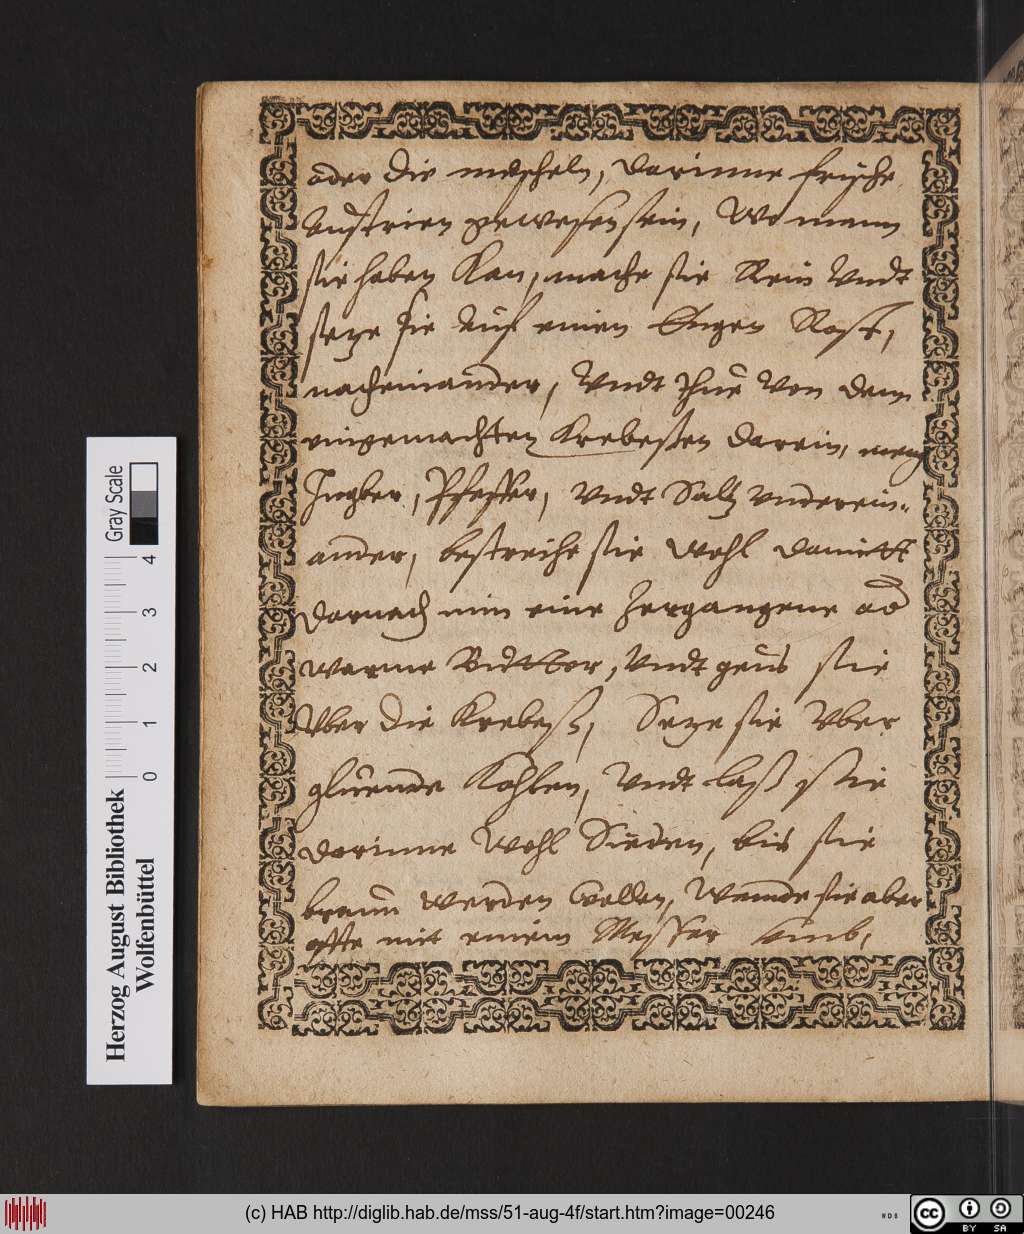 oder die muscheln, darinne frische
Austrien gewesen sein, Wo mann
sie haben Kan, mache sie Rein Vndt
seze sie Auf einen Engen Rost,
nacheinander, Vndt thue Von dem
eingemachten Krebeßen darein, meng
Ingber, Pfeffer, Vndt Saltz vnderein-
ander, bestreihe sie Wohl damitt
darnach nim eine Zergangene od
warme Budtter, Vndt geus sie
Vber die Krebeß, Seze sie Vber
gluende Kohlen, Vndt laß sie
darinne Wohl Sieden, bis sie
braun werden Wollen, Wende sie aber
offte mit einem Messer umb,
Herzog August Bibliothek
Wolfenbüttel
Gray Scale
0 1 2 3 4
(c) HAB http://diglib.hab.de/mss/51-aug-4f/start.htm?image=00246
WDB
cc BY SA